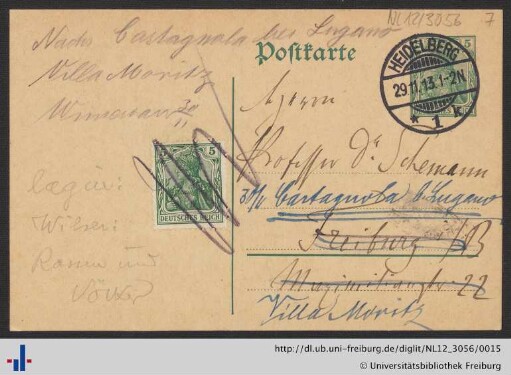 NL12/3056 7
Nach Castagnola bei Lugano
Villa Moritz
30/11
Postkarte
HEIDELBERG
29.11.13.1-2N
* 1 k
5
5
DEUTSCHES REICH
Professor Dr Schemann
30/11 Castagnola b. Lugano
Freiburg i/B
Maximilianstr 22
Villa Moritz
Wilser:
Rassen und
Völker
http://dl.ub.uni-freiburg.de/diglit/NL12_3056/0015
© Universitätsbibliothek Freiburg